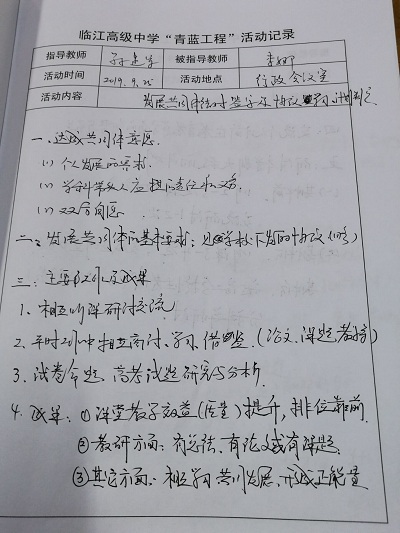 临江高级中学“青蓝工程”活动记录
指导教师 被指导教师
活动时间 2019.9.25 活动地点 行政会议室
活动内容 发展共同体结对签字及协议学习、计划制定
一、达成共同体意愿
(1) 个人发展的要求.
(2) 学科带头人应担责任和义务
(3) 双方自愿.
二、发展共同体的基本要求：见学校下发的协议(略)
三、主要工作及成果
1、相互听课研讨交流
2、平时工作中相互商讨、学习、借鉴.(论文、课题、教学)
3、试卷命题、高考试题研究与分析.
4、成果：①课堂教学效益(质量)提升，排位靠前.
②教研方面：有总结、有论文或有课题.
③其它方面：相互学习共同发展、形成正能量